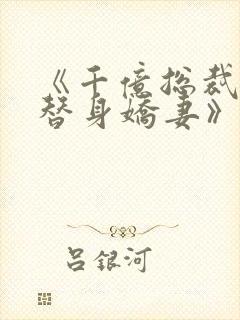 《千億総裁
替身嬌妻》
吕銀河